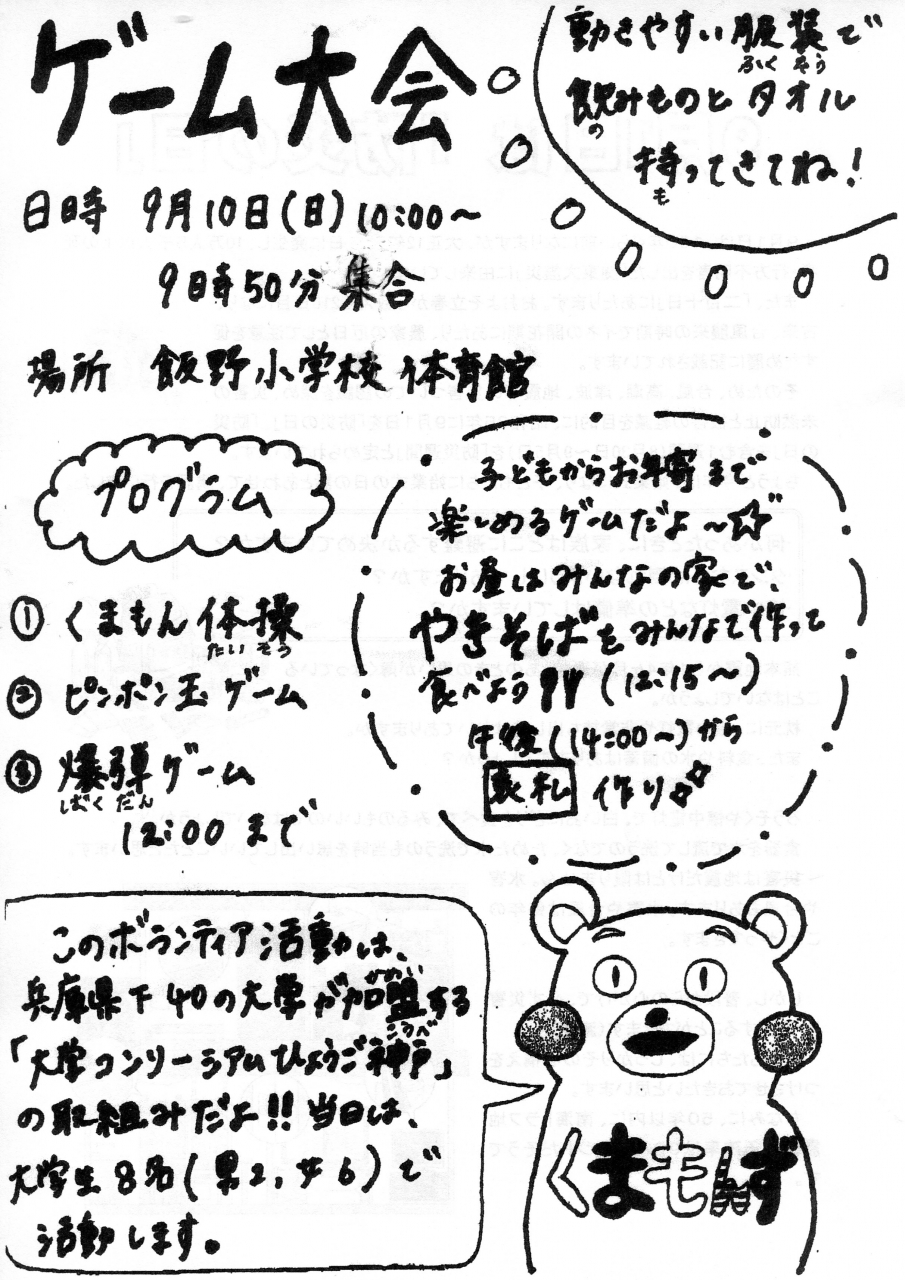 ゲーム大会
動きやすい服装で
ふくそう
飲みものとタオル
の
持ってきてね！
も
日時 9月10日(日) 10:00～
9時50分 集合
場所 飯野小学校 体育館
プログラム
① くまもん体操
たいそう
② ピンポン玉ゲーム
③ 爆弾ゲーム
ばくだん
12:00まで
子どもからお年寄まで
楽しめるゲームだよ～☆
お昼はみんなの家で、
やきそばをみんなで作って
食べよう!!! (12:15～)
午後(14:00～)から
表札 作り
このボランティア活動は、
兵庫県下40の大学が加盟する
かめい
「大学コンソーシアムひょうご神戸」
こうべ
の取組みだよ!! 当日は、
大学生8名(男2, 女6)で
活動します。
くまもんず